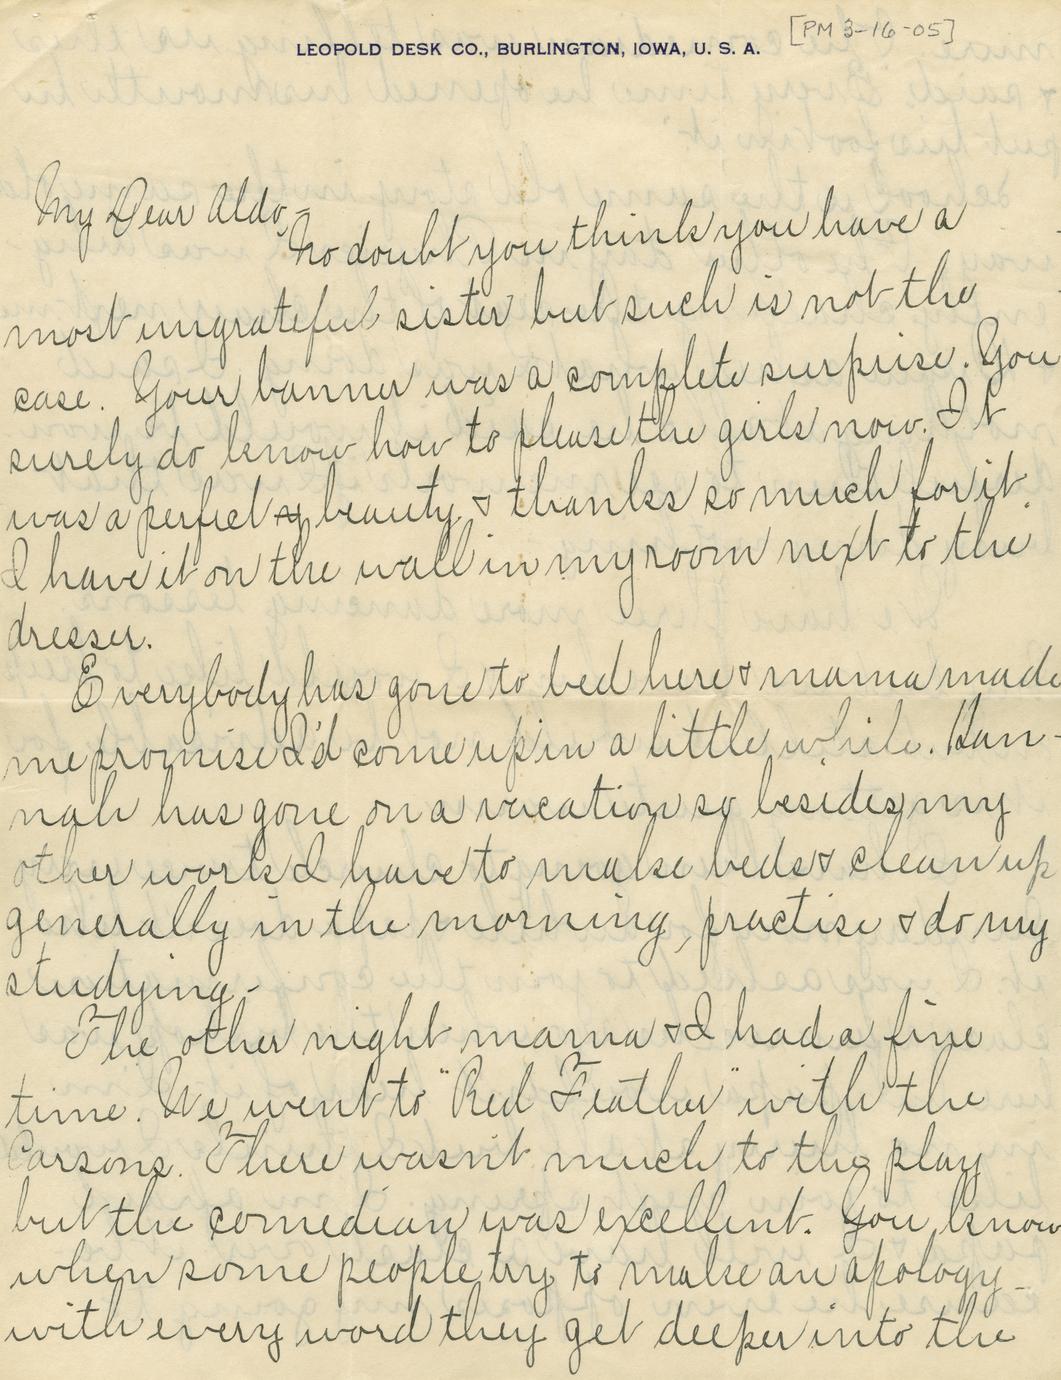 [PM 3-16-05]
LEOPOLD DESK CO., BURLINGTON, IOWA, U. S. A.
My Dear Aldo,-
No doubt you think you have a
most ungrateful sister but such is not the
case. Your banner was a complete surprise. You
surely do know how to please the girls now. It
was a perfect beauty & thanks so much for it.
I have it on the wall in my room next to the
dresser.
Everybody has gone to bed here & mama made
me promise I'd come up in a little while. Han-
nah has gone on a vacation so besides my
other work I have to make beds & clean up
generally in the morning, practise & do my
studying.-
The other night mama & I had a fine
time. We went to "Red Feather" with the
Carsons. There wasn't much to the play
but the comedian was excellent. You know
when some people try to make an apology-
with every word they get deeper into the